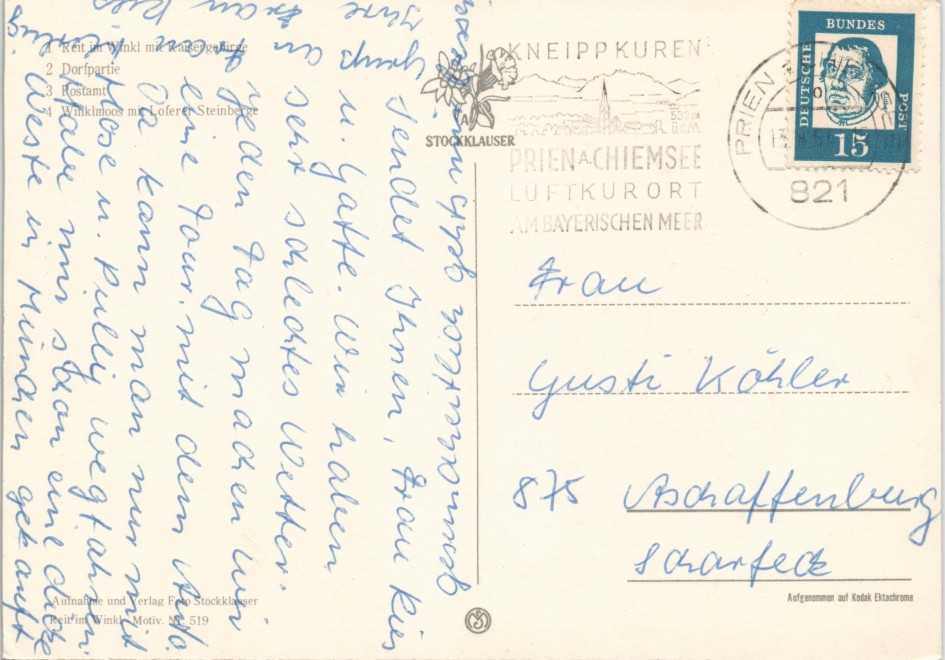 1 Reit im Winkl mit Kaisergebirge
2 Dorfpartie
3 Postamt
4 Winklmoos mit Loferer Steinberge
STOCKKLAUSER
KNEIPPKUREN
PRIEN A. CHIEMSEE
LUFTKURORT
AM BAYERISCHEN MEER
PRIEN
821
DEUTSCHE BUNDES POST
15
sendet Ihnen, Frau Kies
u. Gatte. Wir haben
sehr schlechtes Wetter.
jeden Tag machen wir
eine Tour. mit dem Auto
Da kann man nur mit
Hose u. Pulli wegfahren.
habe mir schon ein dicke
Weste in München gekauft
Frau
Gusti Köhler
875 Aschaffenburg
Scharfeck
Aufnahme und Verlag Foto Stockklauser
Reit im Winkl. Motiv. Nr. 519
Aufgenommen auf Kodak Ektachrome